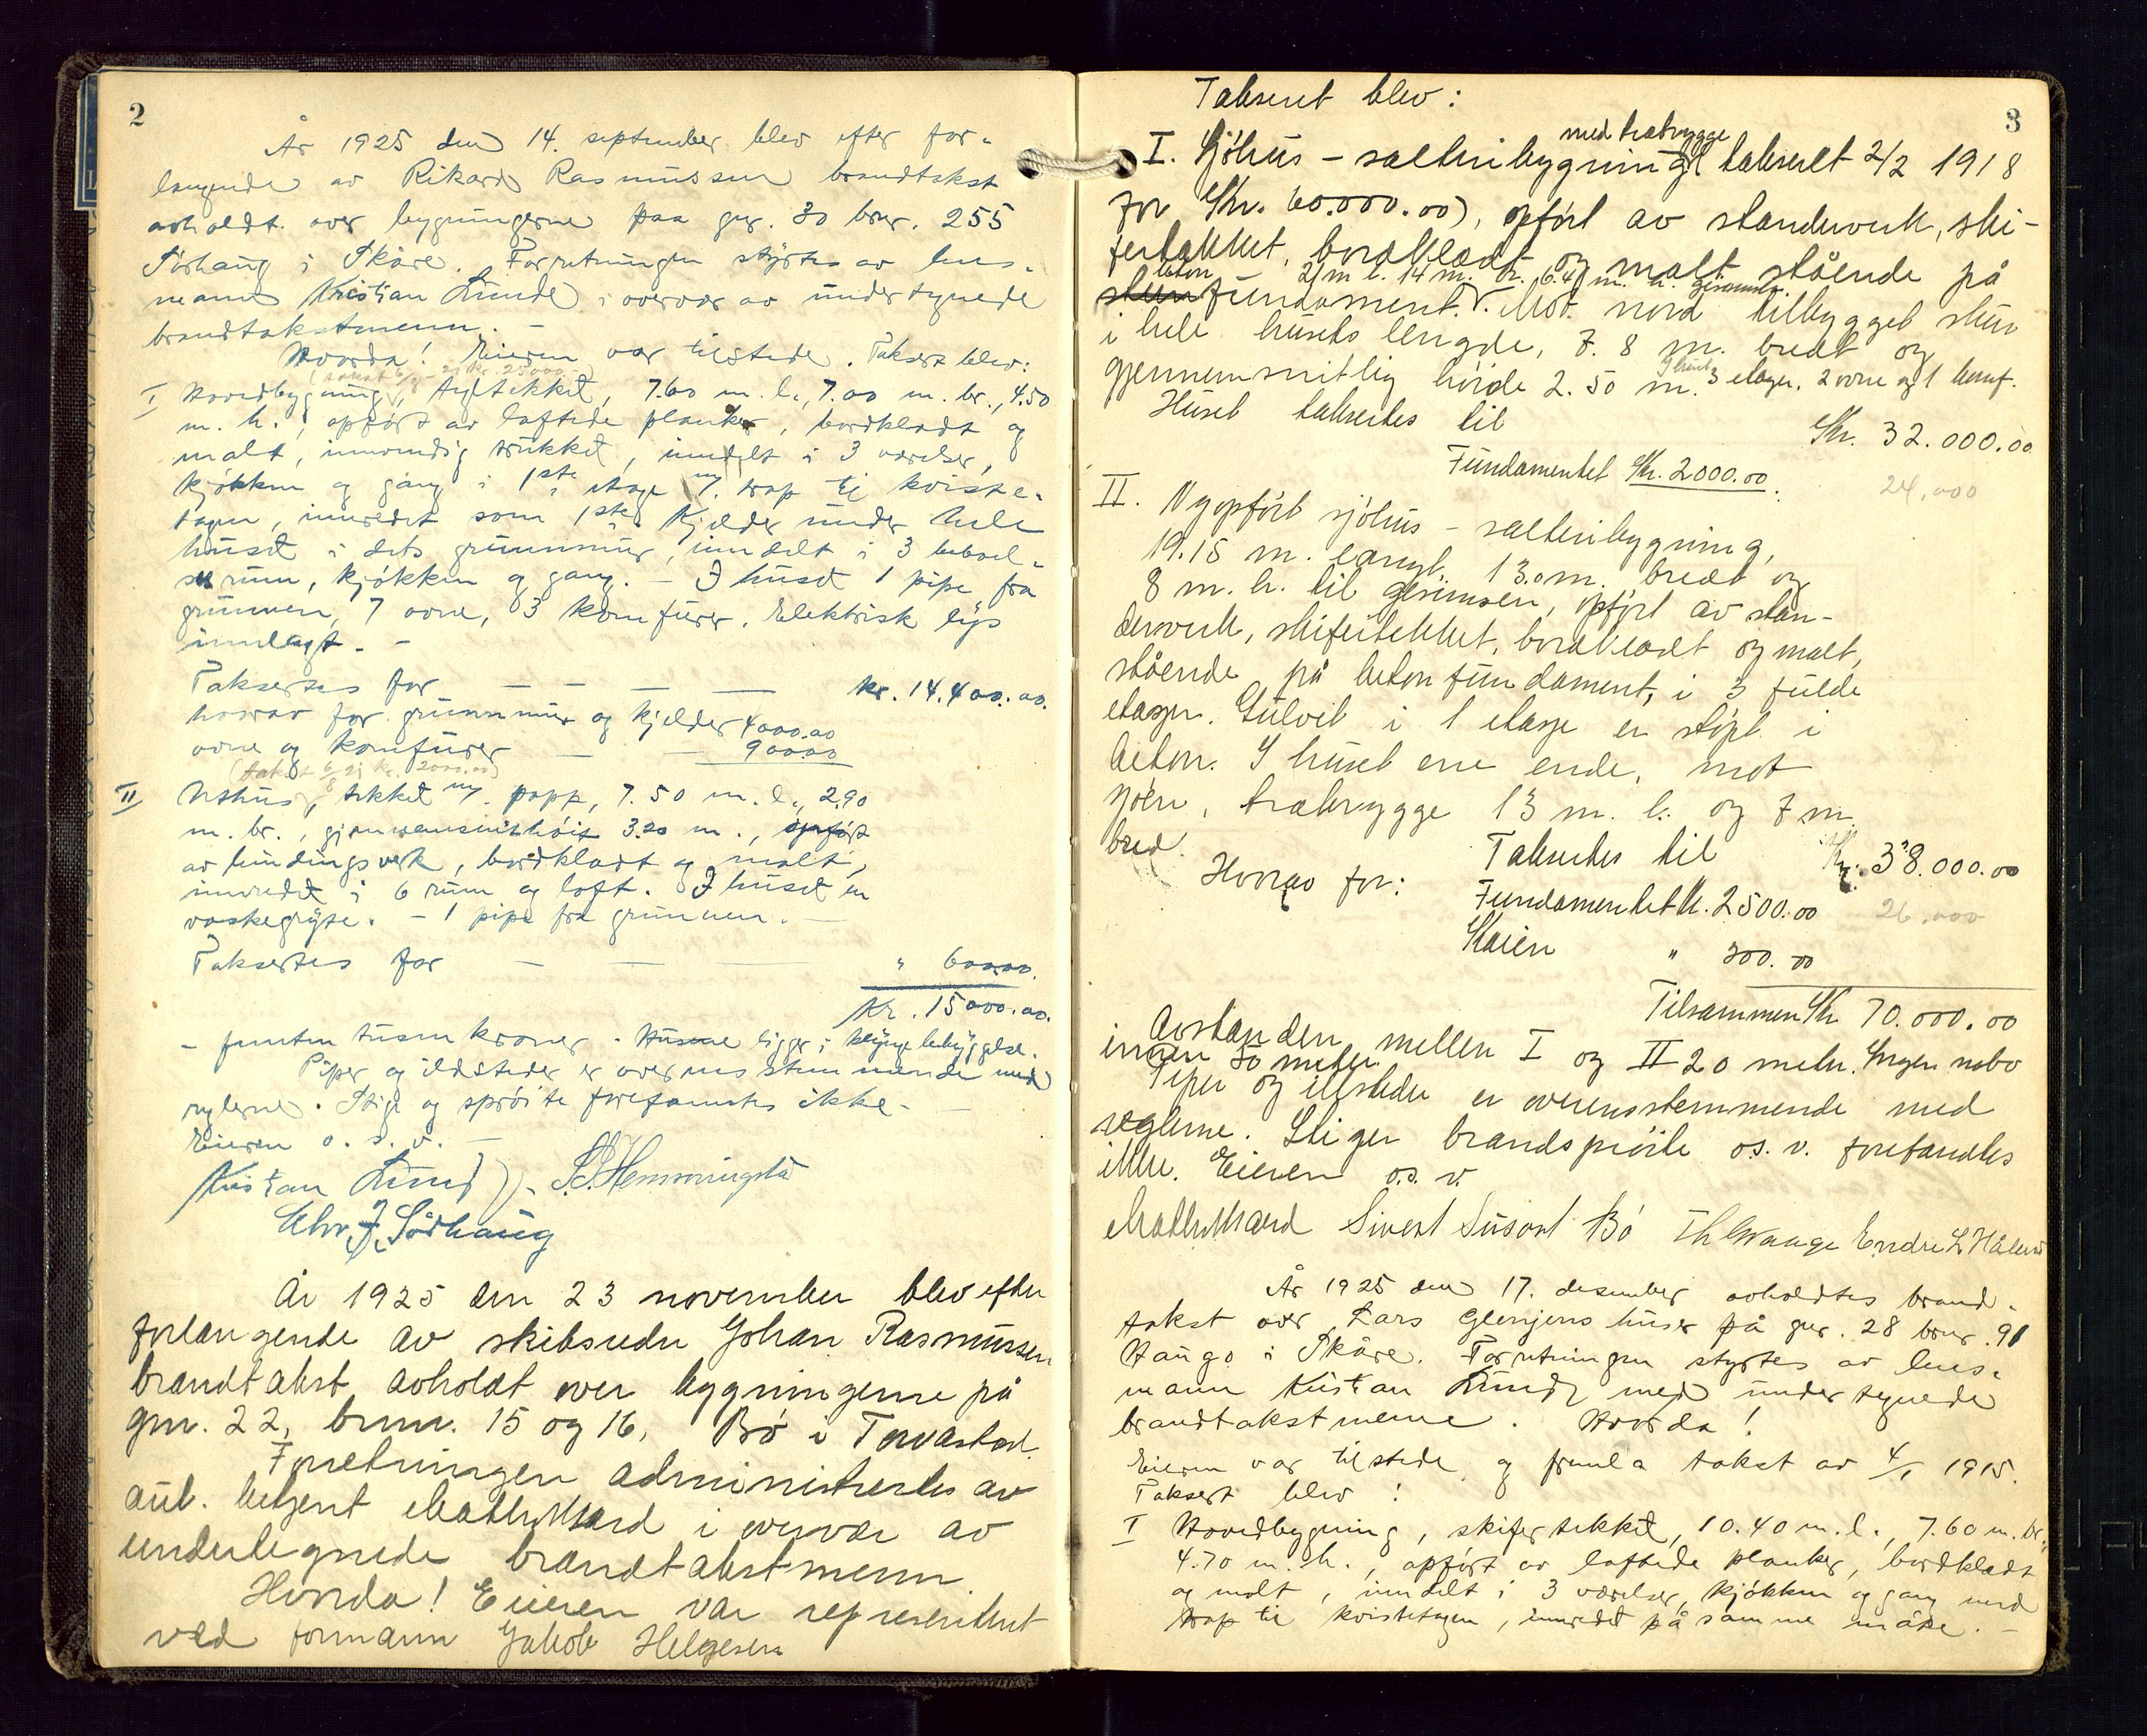 2
År 1925 den 14. september blev efter for-
langende av Rikard Rasmussen brandtakst
avholdt over bygningerne paa gnr. 30 brnr. 255
Sørhaug i Skåre. Forretningen styrtes av lens-
mann Kristian Lunde i overvær av undertegnede
brandtakstmenn. -
Hvorda! Eieren var tilstede. Taksert blev:
I Hovedbygning, tegltekket, 7.60 m. l., 7.00 m. br., 4.50
m. h., opført av laftede planker, bordkledt og
malt, innvendig trukket, inndelt i 3 værelser,
kjøkken og gang i 1ste etage m/. trap til kviste-
tagen, innredet som 1ste. Kjelder under hele
huset i dets grunnmur, inndelt i 3 beboel-
ses rum, kjøkken og gang. - I huset 1 pipe fra
grunnen, 7 ovne, 3 komfurer. Elektrisk lys
innlagt. -
Taksertes for — — — — kr. 14.400.00.
hvorav for grunnmur og kjelder 4000.00
ovne og komfurer — — 900.00
II Uthus, tekket m/. papp, 7.50 m. l., 2.90
m. br., gjennemsnitshøit 3.20 m., opført
av bindingsverk, bordkledt og malt,
innredet i 6 rum og loft. I huset en
vaskegryte. - 1 pipe fra grunnen. —
Taksertes for — — — " 600.00.
Kr. 15000.00.
- femten tusen kroner. - Husene ligger i klyngebebyggelse.
Piper og ildsteder er overensstemmende med
reglerne. Stige og sprøite forefantes ikke. —
Eieren o. s. v. —
Kristian Lunde. S. S. Hemmingstad
Chr. J. Sørhaug
År 1925 den 23 november blev efter
forlangende av skibsreder Johan Rasmussen
brandtakst avholdt over bygningerne på
gnr. 22, brnr. 15 og 16, Bø i Torvastad.
Forretningen administrertes av
aut. betjent Math. Mæd i overvær av
undertegnede brandtakstmenn.
Hvorda! Eieren var representert
ved formann Jakob Helgesen
3
Taksert blev:
med træbrygge
I. Sjøhus - salteribygning (taksert 2/2 1918
for Kr. 60.000.00), opført av standerverk, ski-
fertekket, bordklædt og malt, stående på
beton 21 m l. 14 m. br. 6.40 m. h. gesimsen
fundament. Mot nord tilbygget skur
i hele husets lengde, 7.8 m. bredt og
gjennemsnitlig høide 2.50 m. I huset 3 etager. 2 ovne og 1 komf.
Huset takseres til Kr. 32.000.00
Fundamentet Kr. 2000.00.
24.000
II. Nyopført sjøhus - salteribygning,
19.15 m. langt, 13.0 m. bredt og
8 m. h. til gesimsen, opført av stan-
derverk, skifertekket, bordklædt og malt,
stående på betonfundament, i 3 fulde
etager. Gulvet i 1 etage er støpt i
beton. I huset ene ende, mot
sjøen, træbrygge 13 m. l. og 7 m.
bred.
Taksertes til Kr. 38.000.00
Hvorav for: Fundamentet Kr. 2500.00 26.000
Kaien " 300.00
Tilsammen Kr. 70.000.00
Avstanden mellen I og II 20 meter. Ingen nabo
innen 50 meter.
Piper og ildsteder er overensstemmende med
reglerne. Stiger brandsprøite os. v. forefandtes
ikke. Eieren o.s. v.
Math. Mæd Sivert Susort Bø Th Waage Endre L Håland
År 1925 den 17. desember avholdtes brand-
takst over Lars Glenjens huser på gnr. 28 brnr. 91
Hauge i Skåre. Forretningen styrtes av lens-
mann Kristian Lunde med undertegnede
brandtakstmenn. Hvorda!
Eieren var tilstede og fremla takst av 4/1 1915.
Taksert blev:
I Hovedbygning, skifertekket, 10.40 m. l., 7.60 m. br.,
4.70 m. h., opført av laftede planker, bordkledt
og malt, inndelt i 3 værelser, kjøkken og gang med
trap til kvistetagen, innredet på samme måte. -